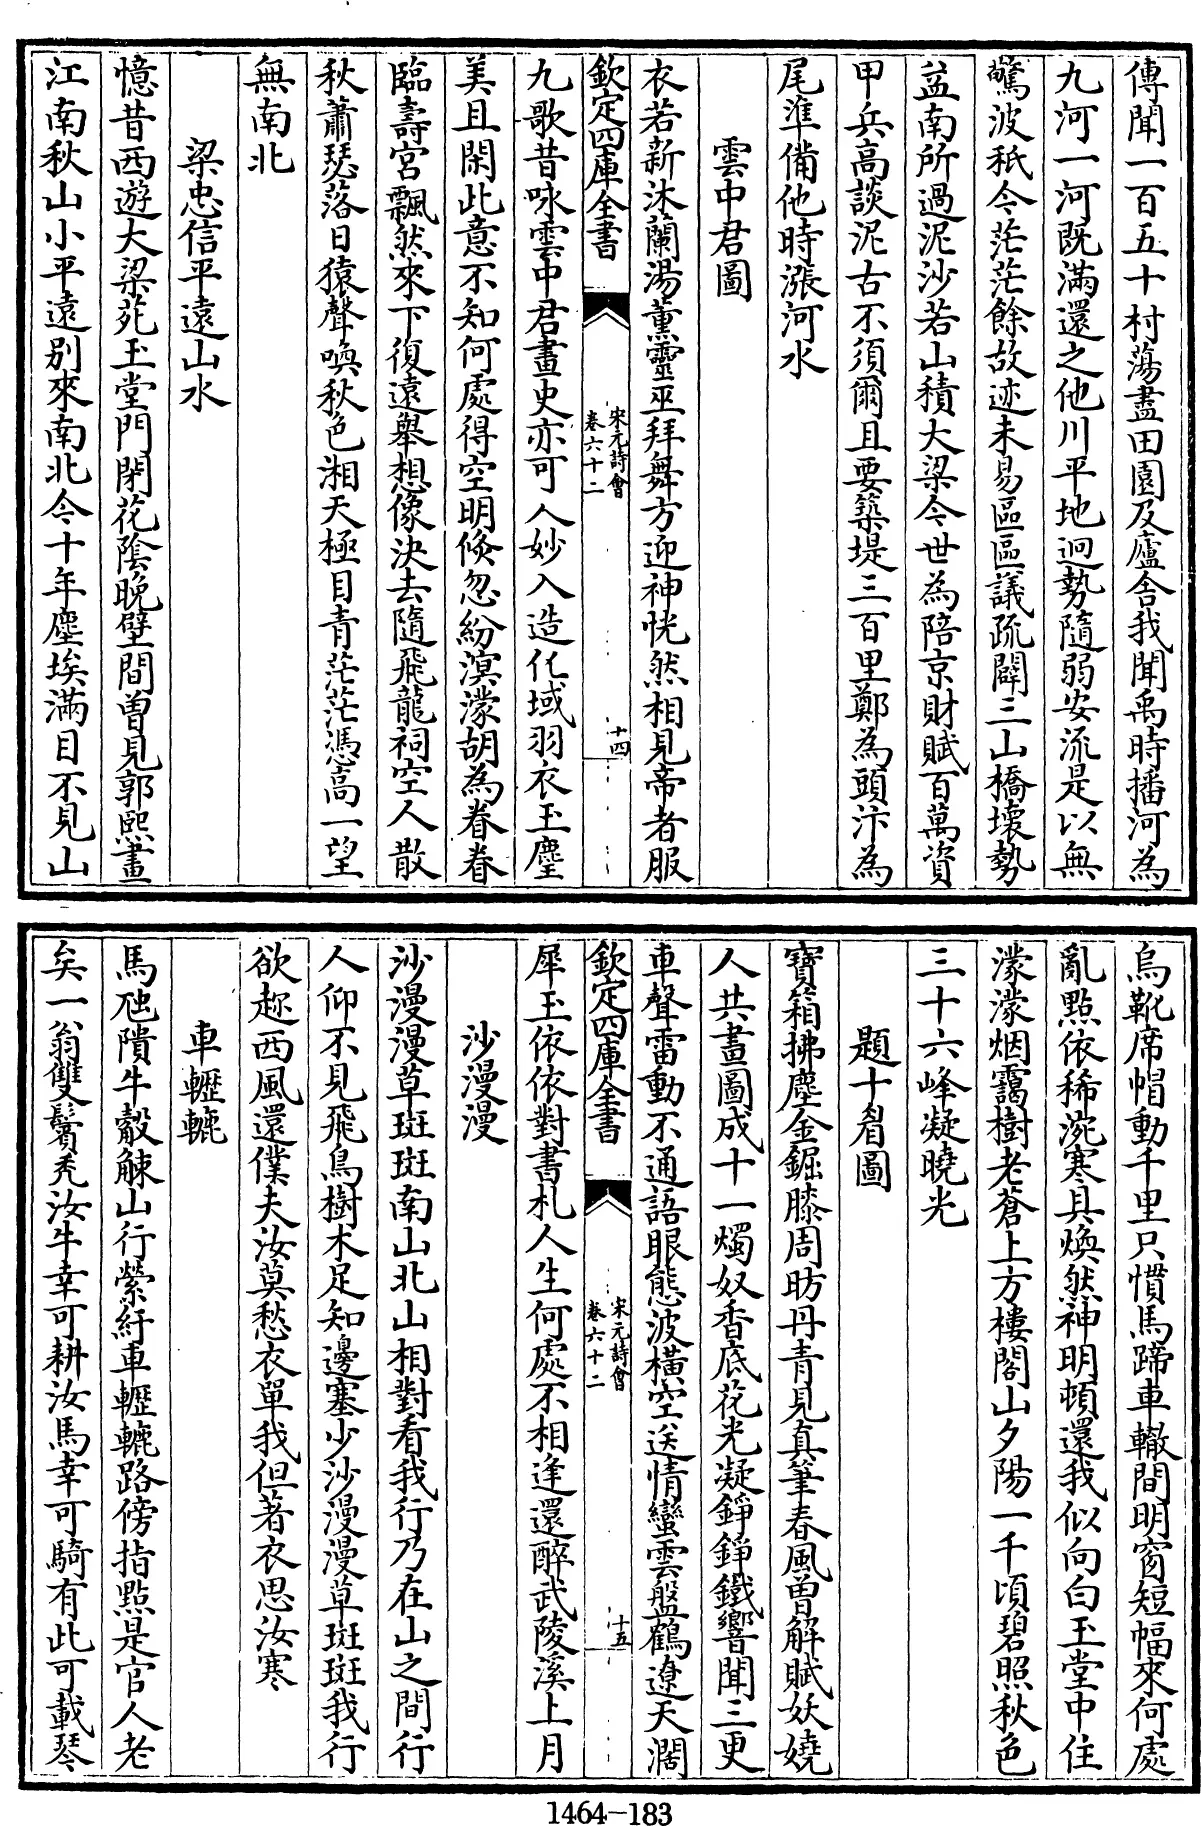 傳聞一百五十村蕩盡田園及廬舍我聞禹時播河為
九河一河既滿還之他川平地迥勢隨弱安流是以無
驚波秖今茫茫餘故迹未易區區議疏闢三山橋壞勢
益南所過泥沙若山積大梁今世為陪京財賦百萬資
甲兵高談泥古不須爾且要築堤三百里鄭為頭汴為
尾準備他時漲河水
雲中君圖
衣若新沐蘭湯薰靈巫拜舞方迎神恍然相見帝者服
欽定四庫全書
宋元詩會
卷六十二
十四
九歌昔咏雲中君畫史亦可人妙入造化域羽衣玉麈
美且閑此意不知何處得空明倏忽紛溟濛胡為眷眷
臨壽宮飄然來下復遠舉想像決去隨飛龍祠空人散
秋蕭瑟落日猿聲喚秋色湘天極目青茫茫憑高一望
無南北
梁忠信平遠山水
憶昔西遊大梁苑玉堂門閉花陰晚壁間曽見郭熙畫
江南秋山小平遠別來南北今十年塵埃滿目不見山
烏靴席帽動千里只慣馬蹄車轍間明窗短幅來何處
亂點依稀涴寒具煥然神明頓還我似向白玉堂中住
濛濛烟靄樹老蒼上方樓閣山夕陽一千頃碧照秋色
三十六峰凝曉光
題十眉圖
寶箱拂塵金鋸膝周昉丹青見真筆春風曽解賦妖嬈
人共畫圖成十一燭奴香底花光凝錚錚鐵響聞三更
車聲雷動不通語眼態波橫空送情蠻雲盤鶴遼天濶
欽定四庫全書
宋元詩會
卷六十二
十五
犀玉依依對書札人生何處不相逢還醉武陵溪上月
沙漫漫
沙漫漫草斑斑南山北山相對看我行乃在山之間行
人仰不見飛鳥樹木足知邊塞少沙漫漫草斑斑我行
欲趂西風還僕夫汝莫愁衣單我但著衣思汝寒
車轣轆
馬虺隤牛觳觫山行縈紆車轣轆路傍指點是官人老
矣一翁雙鬢禿汝牛幸可耕汝馬幸可騎有此可載琴
1464-183